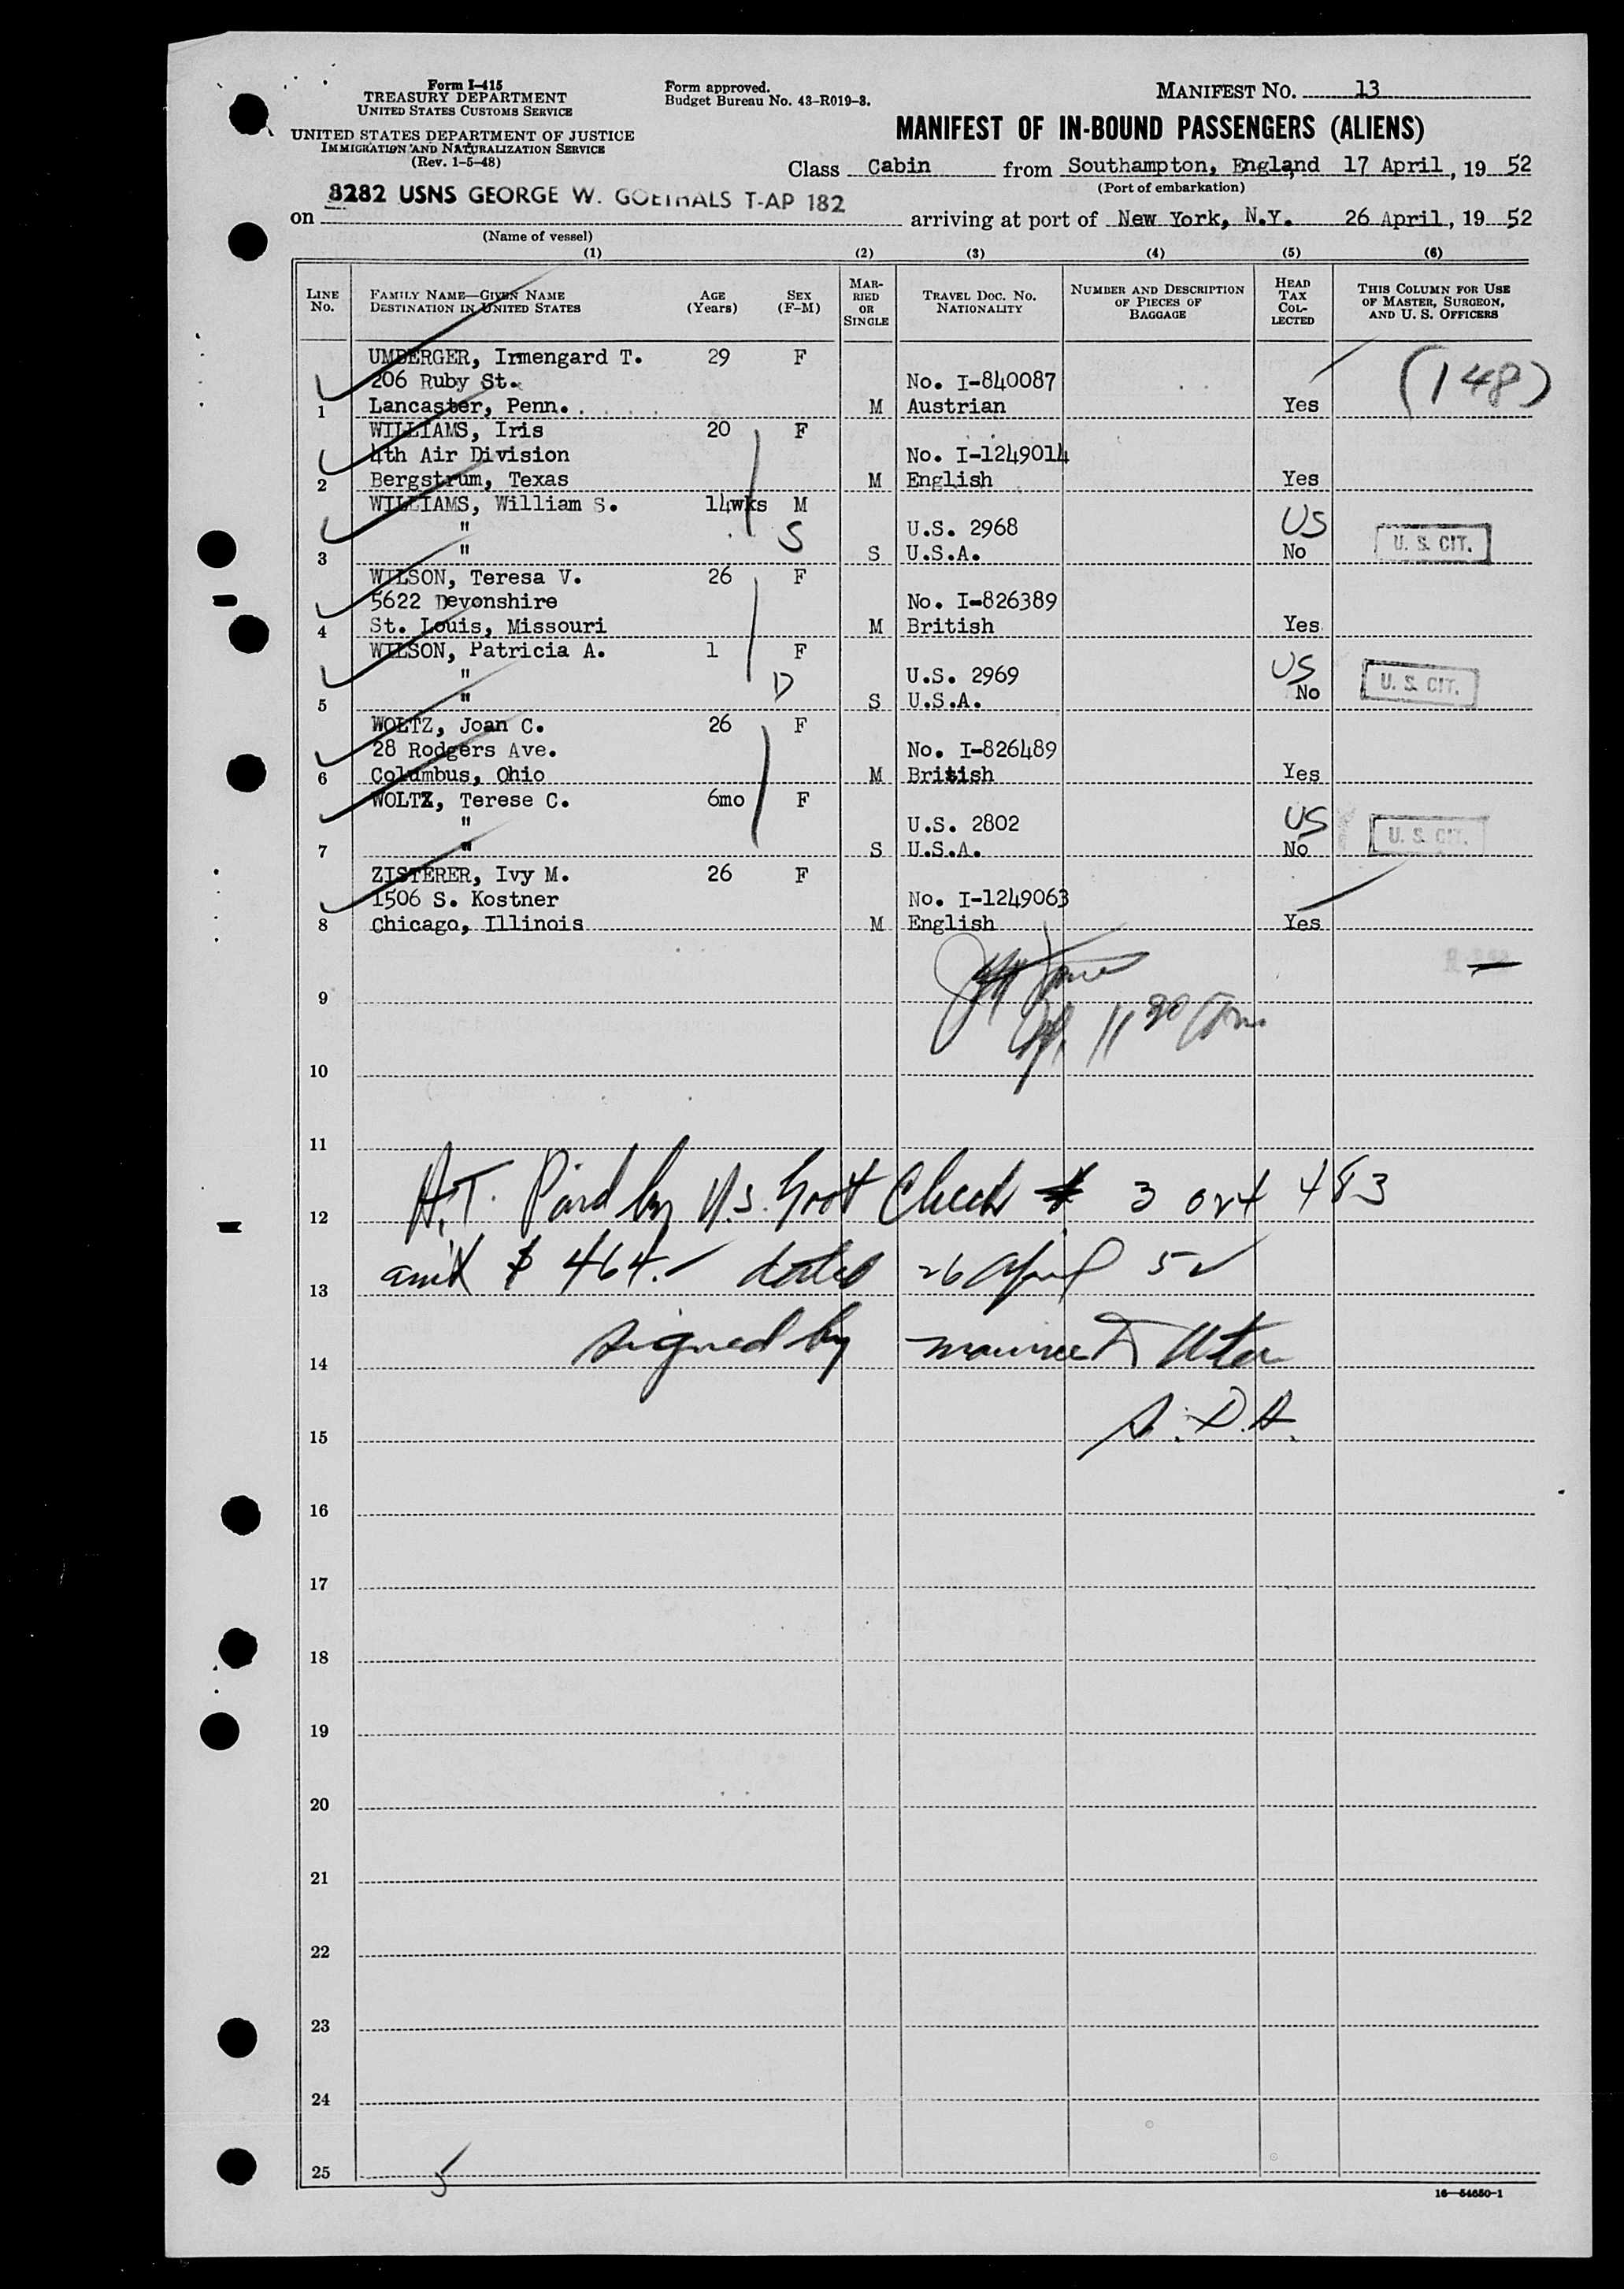 Form I-415
TREASURY DEPARTMENT
UNITED STATES CUSTOMS SERVICE
UNITED STATES DEPARTMENT OF JUSTICE
IMMIGRATION AND NATURALIZATION SERVICE
(Rev. 1-5-48)
Form approved.
Budget Bureau No. 43-R019-3.
MANIFEST NO. 13
MANIFEST OF IN-BOUND PASSENGERS (ALIENS)
Class Cabin from Southampton, England 17 April, 19 52
(Port of embarkation)
on 8282 USNS GEORGE W. GOETHALS T-AP 182 arriving at port of New York, N.Y. 26 April, 19 52
(Name of vessel)
(1) (2) (3) (4) (5) (6)
LINE No. FAMILY NAME—GIVEN NAME DESTINATION IN UNITED STATES AGE (Years) SEX (F-M) MARRIED OR SINGLE TRAVEL DOC. NO. NATIONALITY NUMBER AND DESCRIPTION OF PIECES OF BAGGAGE HEAD TAX COLLECTED THIS COLUMN FOR USE OF MASTER, SURGEON, AND U. S. OFFICERS
UMBERGER, Irmengard T. 29 F
206 Ruby St. No. I-840087 (148)
1 Lancaster, Penn. M Austrian Yes
WILLIAMS, Iris 20 F
4th Air Division No. I-1249014
2 Bergstrum, Texas M English Yes
WILLIAMS, William S. 14wks M
" S U.S. 2968 US
3 " S U.S.A. No U. S. CIT.
WILSON, Teresa V. 26 F
5622 Devonshire No. I-826389
4 St. Louis, Missouri M British Yes
WILSON, Patricia A. 1 F
" D U.S. 2969 US
5 " S U.S.A. No U. S. CIT.
WOLTZ, Joan C. 26 F
28 Rodgers Ave. No. I-826489
6 Columbus, Ohio M British Yes
WOLTZ, Terese C. 6mo F
" U.S. 2802 US
7 " S U.S.A. No U. S. CIT.
ZISTERER, Ivy M. 26 F
1506 S. Kostner No. I-1249063
8 Chicago, Illinois M English Yes
9
10
11
12 H.T. Paid by U.S. Govt Check # 3 483
13 amt $ 464. dated 26 April 52
14 signed by
15
16
17
18
19
20
21
22
23
24
25 5
16—54650-1